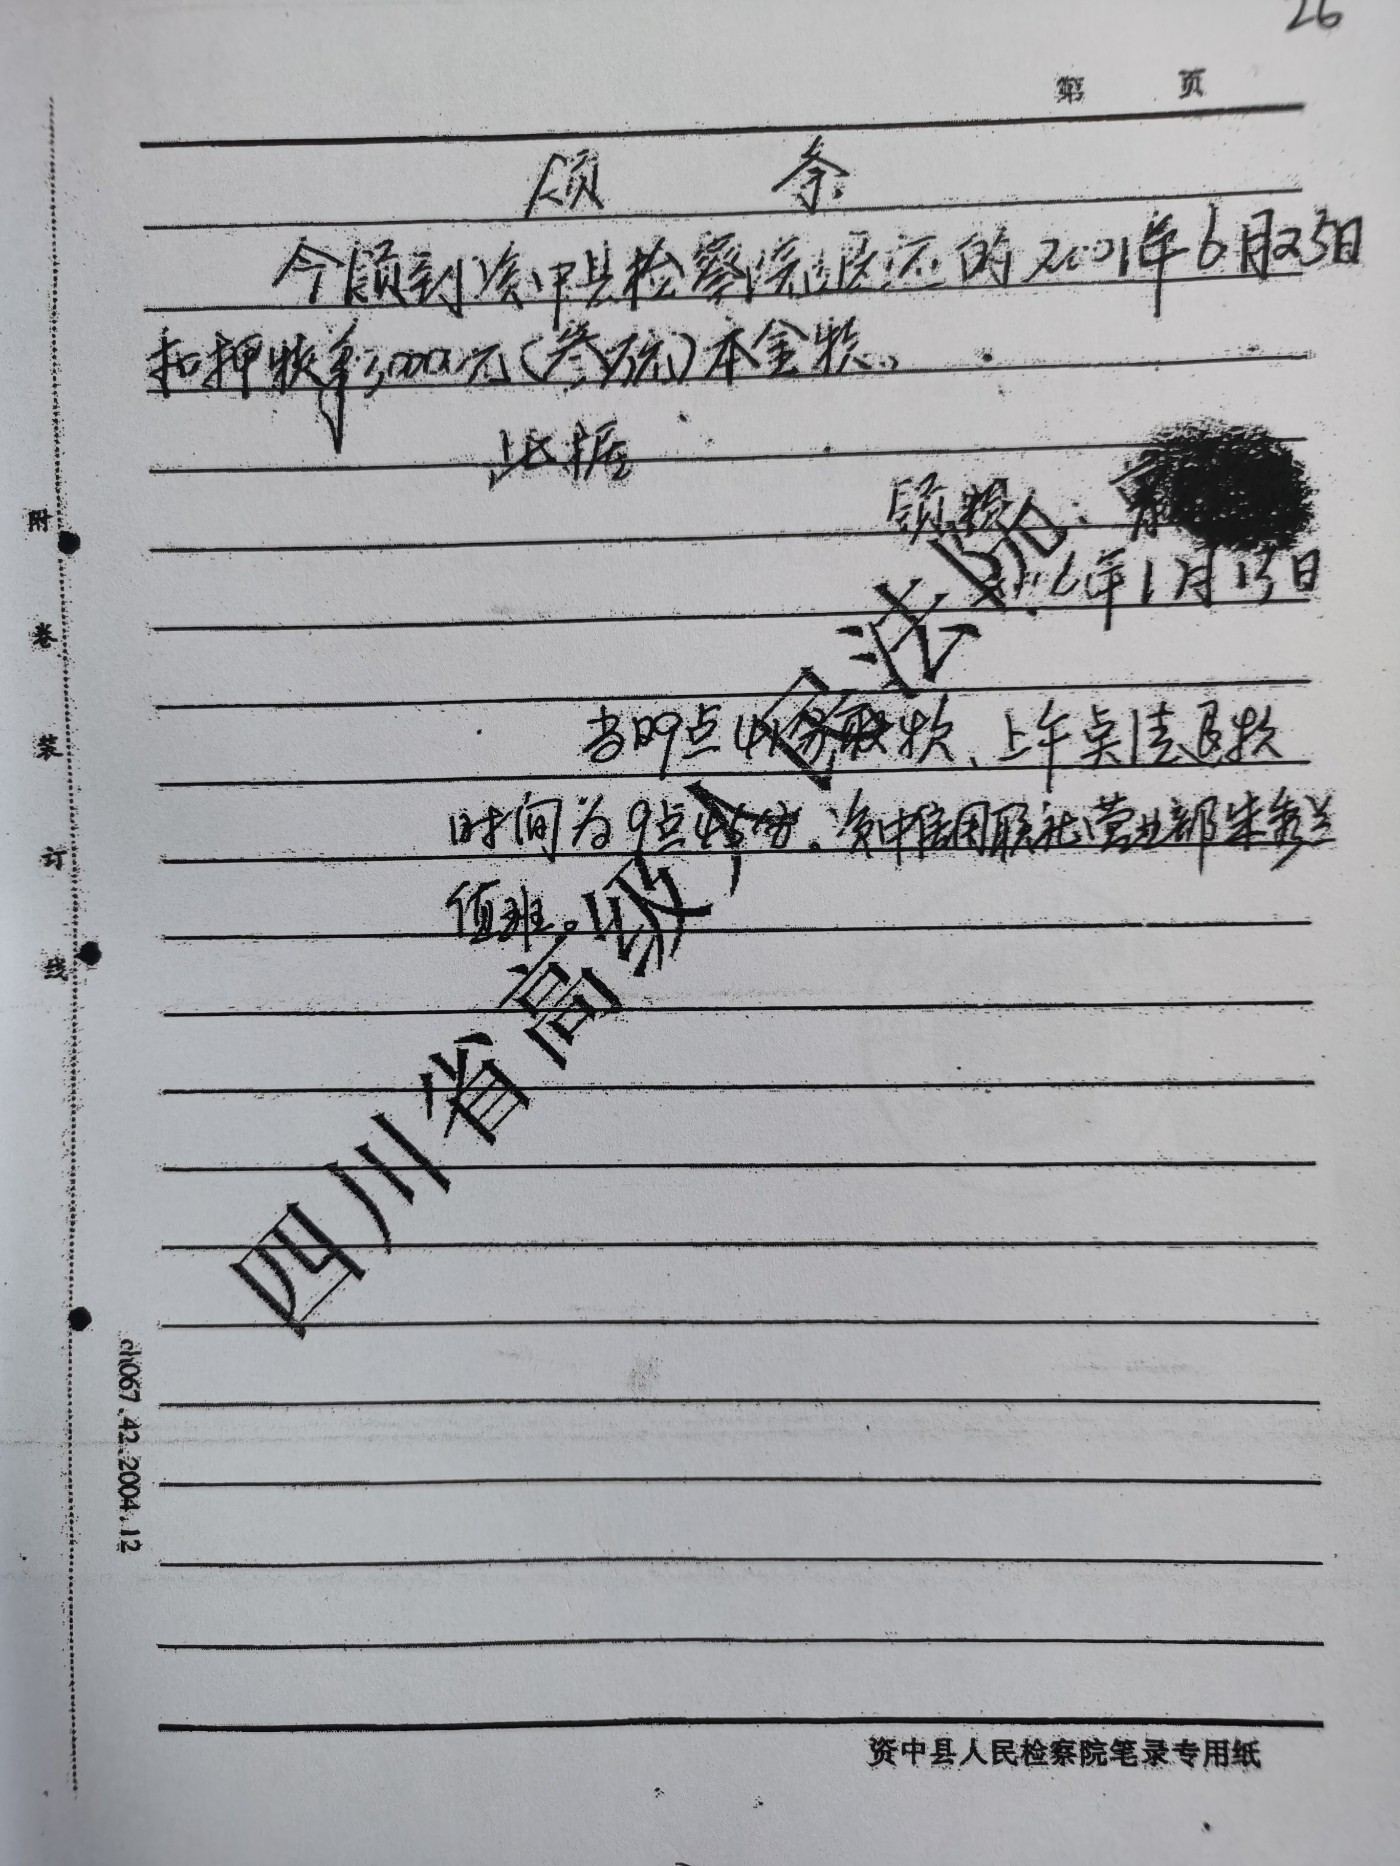 26
第 页
领 条
今领到资中县检察院退还的2001年6月25日
扣押现金30000元(叁万元)本金款。
此据
领款人:
年1月13日
当日9点41分取款、上午点清退款
时间为9点45分。资中信用联社营业部朱秀兰
值班。
四川省高级人民法院
附卷装订线
ch067.42.2004.12
资中县人民检察院笔录专用纸